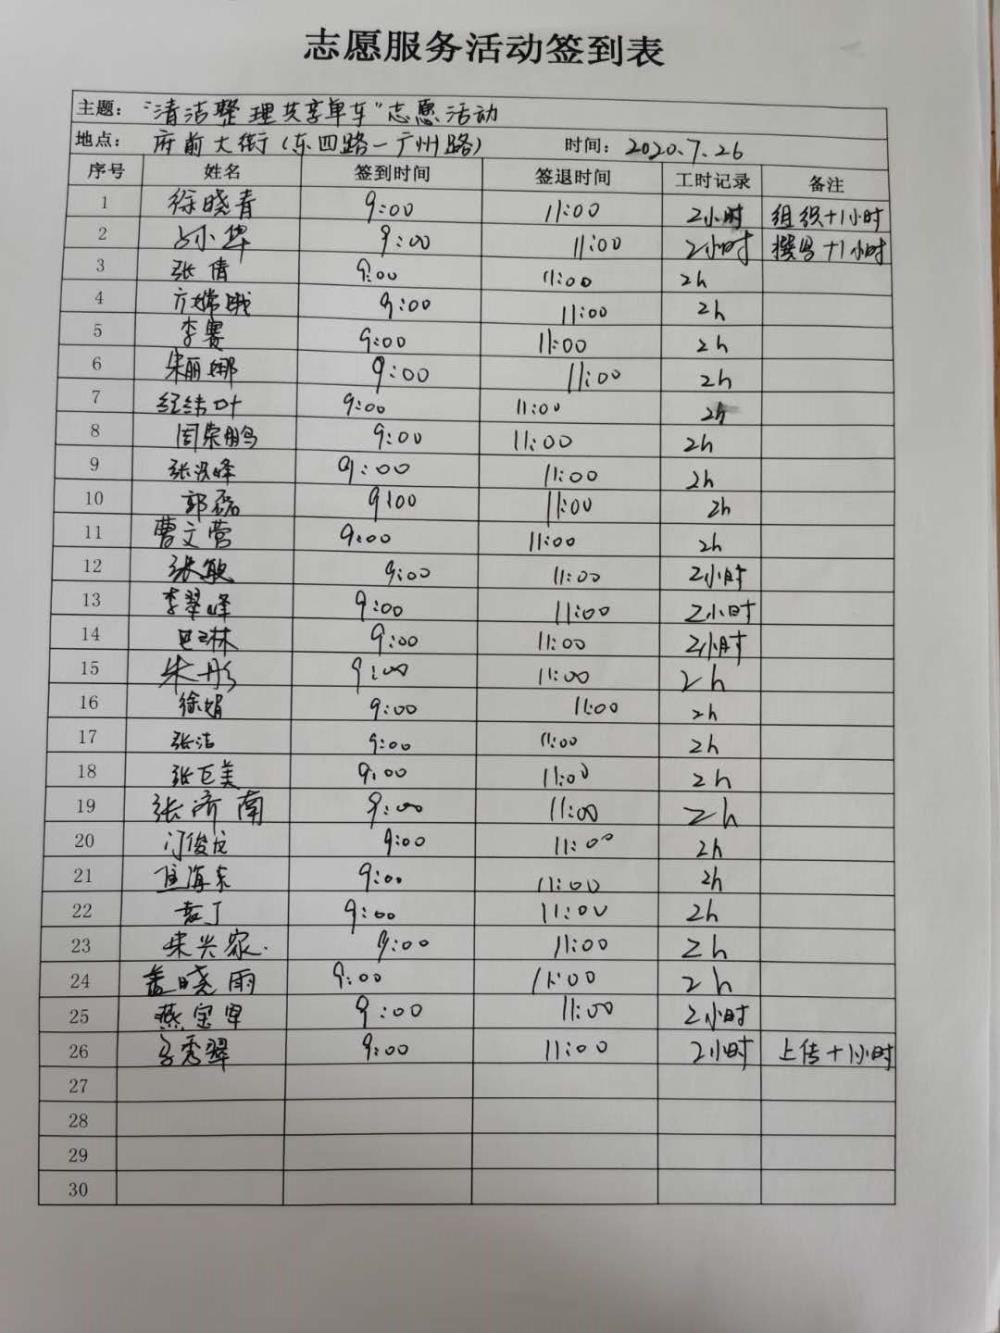 志愿服务活动签到表
主题： "清洁整理共享单车"志愿活动
地点： 府前大街（东四路一广州路） 时间： 2020.7.26
序号 姓名 签到时间 签退时间 工时记录 备注
1 徐晓青 9:00 11:00 2小时 组织+1小时
2 小华 9:00 11:00 2小时 撰写+1小时
3 张倩 9:00 11:00 2h
4 9:00 11:00 2h
5 李赛 9:00 11:00 2h
6 宋丽娜 9:00 11:00 2h
7 经纬叶 9:00 11:00 2h
8 周荣鹏 9:00 11:00 2h
9 张洪峰 9:00 11:00 2h
10 郭磊 9:00 11:00 2h
11 曹文营 9:00 11:00 2h
12 张敏 9:00 11:00 2小时
13 李翠峰 9:00 11:00 2小时
14 9:00 11:00 2小时
15 朱彤 9:00 11:00 2h
16 徐娟 9:00 11:00 2h
17 张洁 9:00 11:00 2h
18 张巨美 9:00 11:00 2h
19 张济南 9:00 11:00 2h
20 门俊龙 9:00 11:00 2h
21 海东 9:00 11:00 2h
22 袁丁 9:00 11:00 2h
23 宋兴家 9:00 11:00 2h
24 盖晓雨 9:00 11:00 2h
25 燕宝军 9:00 11:00 2小时
26 秀翠 9:00 11:00 2小时 上传+1小时
27
28
29
30